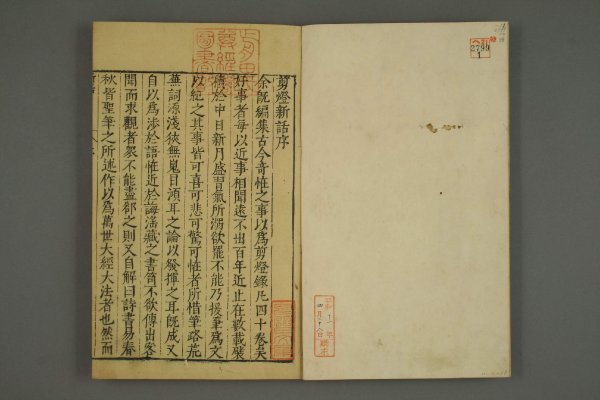 剪燈新話序
余既編集古今奇恠之事以爲剪燈錄凡四十卷矣
好事者每以近事相聞遠不出百年近止在數載襞
積於中日新月盛習氣所溺欲罷不能乃援筆爲文
以紀之其事皆可喜可悲可驚可恠者所惜筆路荒
蕪詞源淺狹無嵬目鴻耳之論以發揮之耳既成又
自以爲涉於語恠近於誨滛藏之書笥不欲傳出客
聞而求觀者衆不能盡郤之則又自解曰詩書易春
秋皆聖筆之所述作以爲萬世大經大法者也然而
2799
1